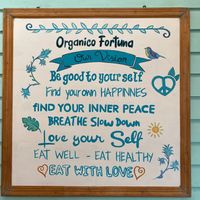 Organico Fortuna
Our Vision
Be good to yourself
Find your own HAPPINNES
fIND YOUR INNER PEACE
BREATHE Slow Down
Love your Self
EAT WELL - EAT HEALTHY
EAT WITH LOVE